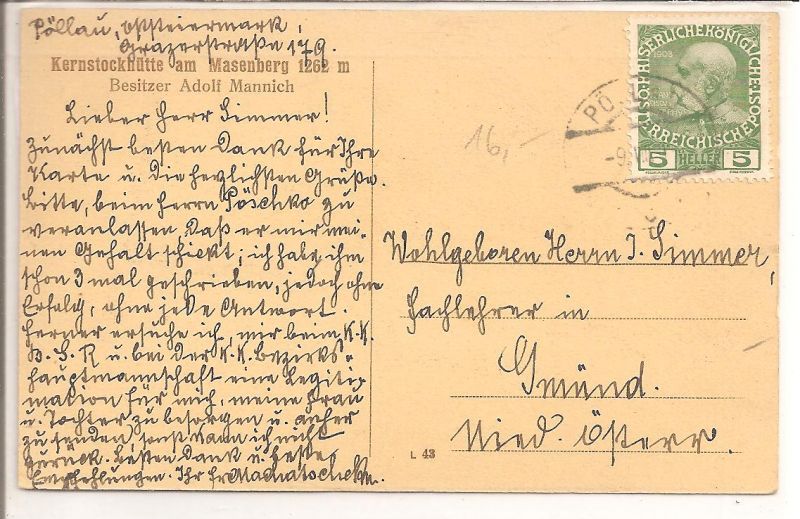 Pöllau, Oststeiermark,
Grazerstraße 179.
Kernstockhütte am Masenberg 1262 m
Besitzer Adolf Mannich
Lieber Herr Simmer!
Zunächst besten Dank für Ihre
Karte u. die herzlichsten Grüße.
Bitte, beim Herrn Pöschko zu
veranlassen, daß er mir mei-
nen Gehalt schickt; ich habe ihm
schon 3 mal geschrieben, jedoch ohne
Erfolg, ohne jede Antwort.
Ferner ersuche ich, mir beim K.K.
B. S. R u. bei der K.K. Bezirks-
hauptmannschaft eine Legiti-
mation für mich, meine Frau
u. Tochter zu besorgen u. anher
zu senden, sonst kann ich nicht
zurück. Besten Dank u. beste
Empfehlungen. Ihr Fr. Machatschek m.
16,-
KAISERLICHE KÖNIGLICHE ÖSTERREICHISCHE POST
1908
5 HELLER 5
PÖ
-9.
Wohlgeboren Herrn J. Simmer,
Fachlehrer in
Gmünd.
Nied. Österr.
L 43